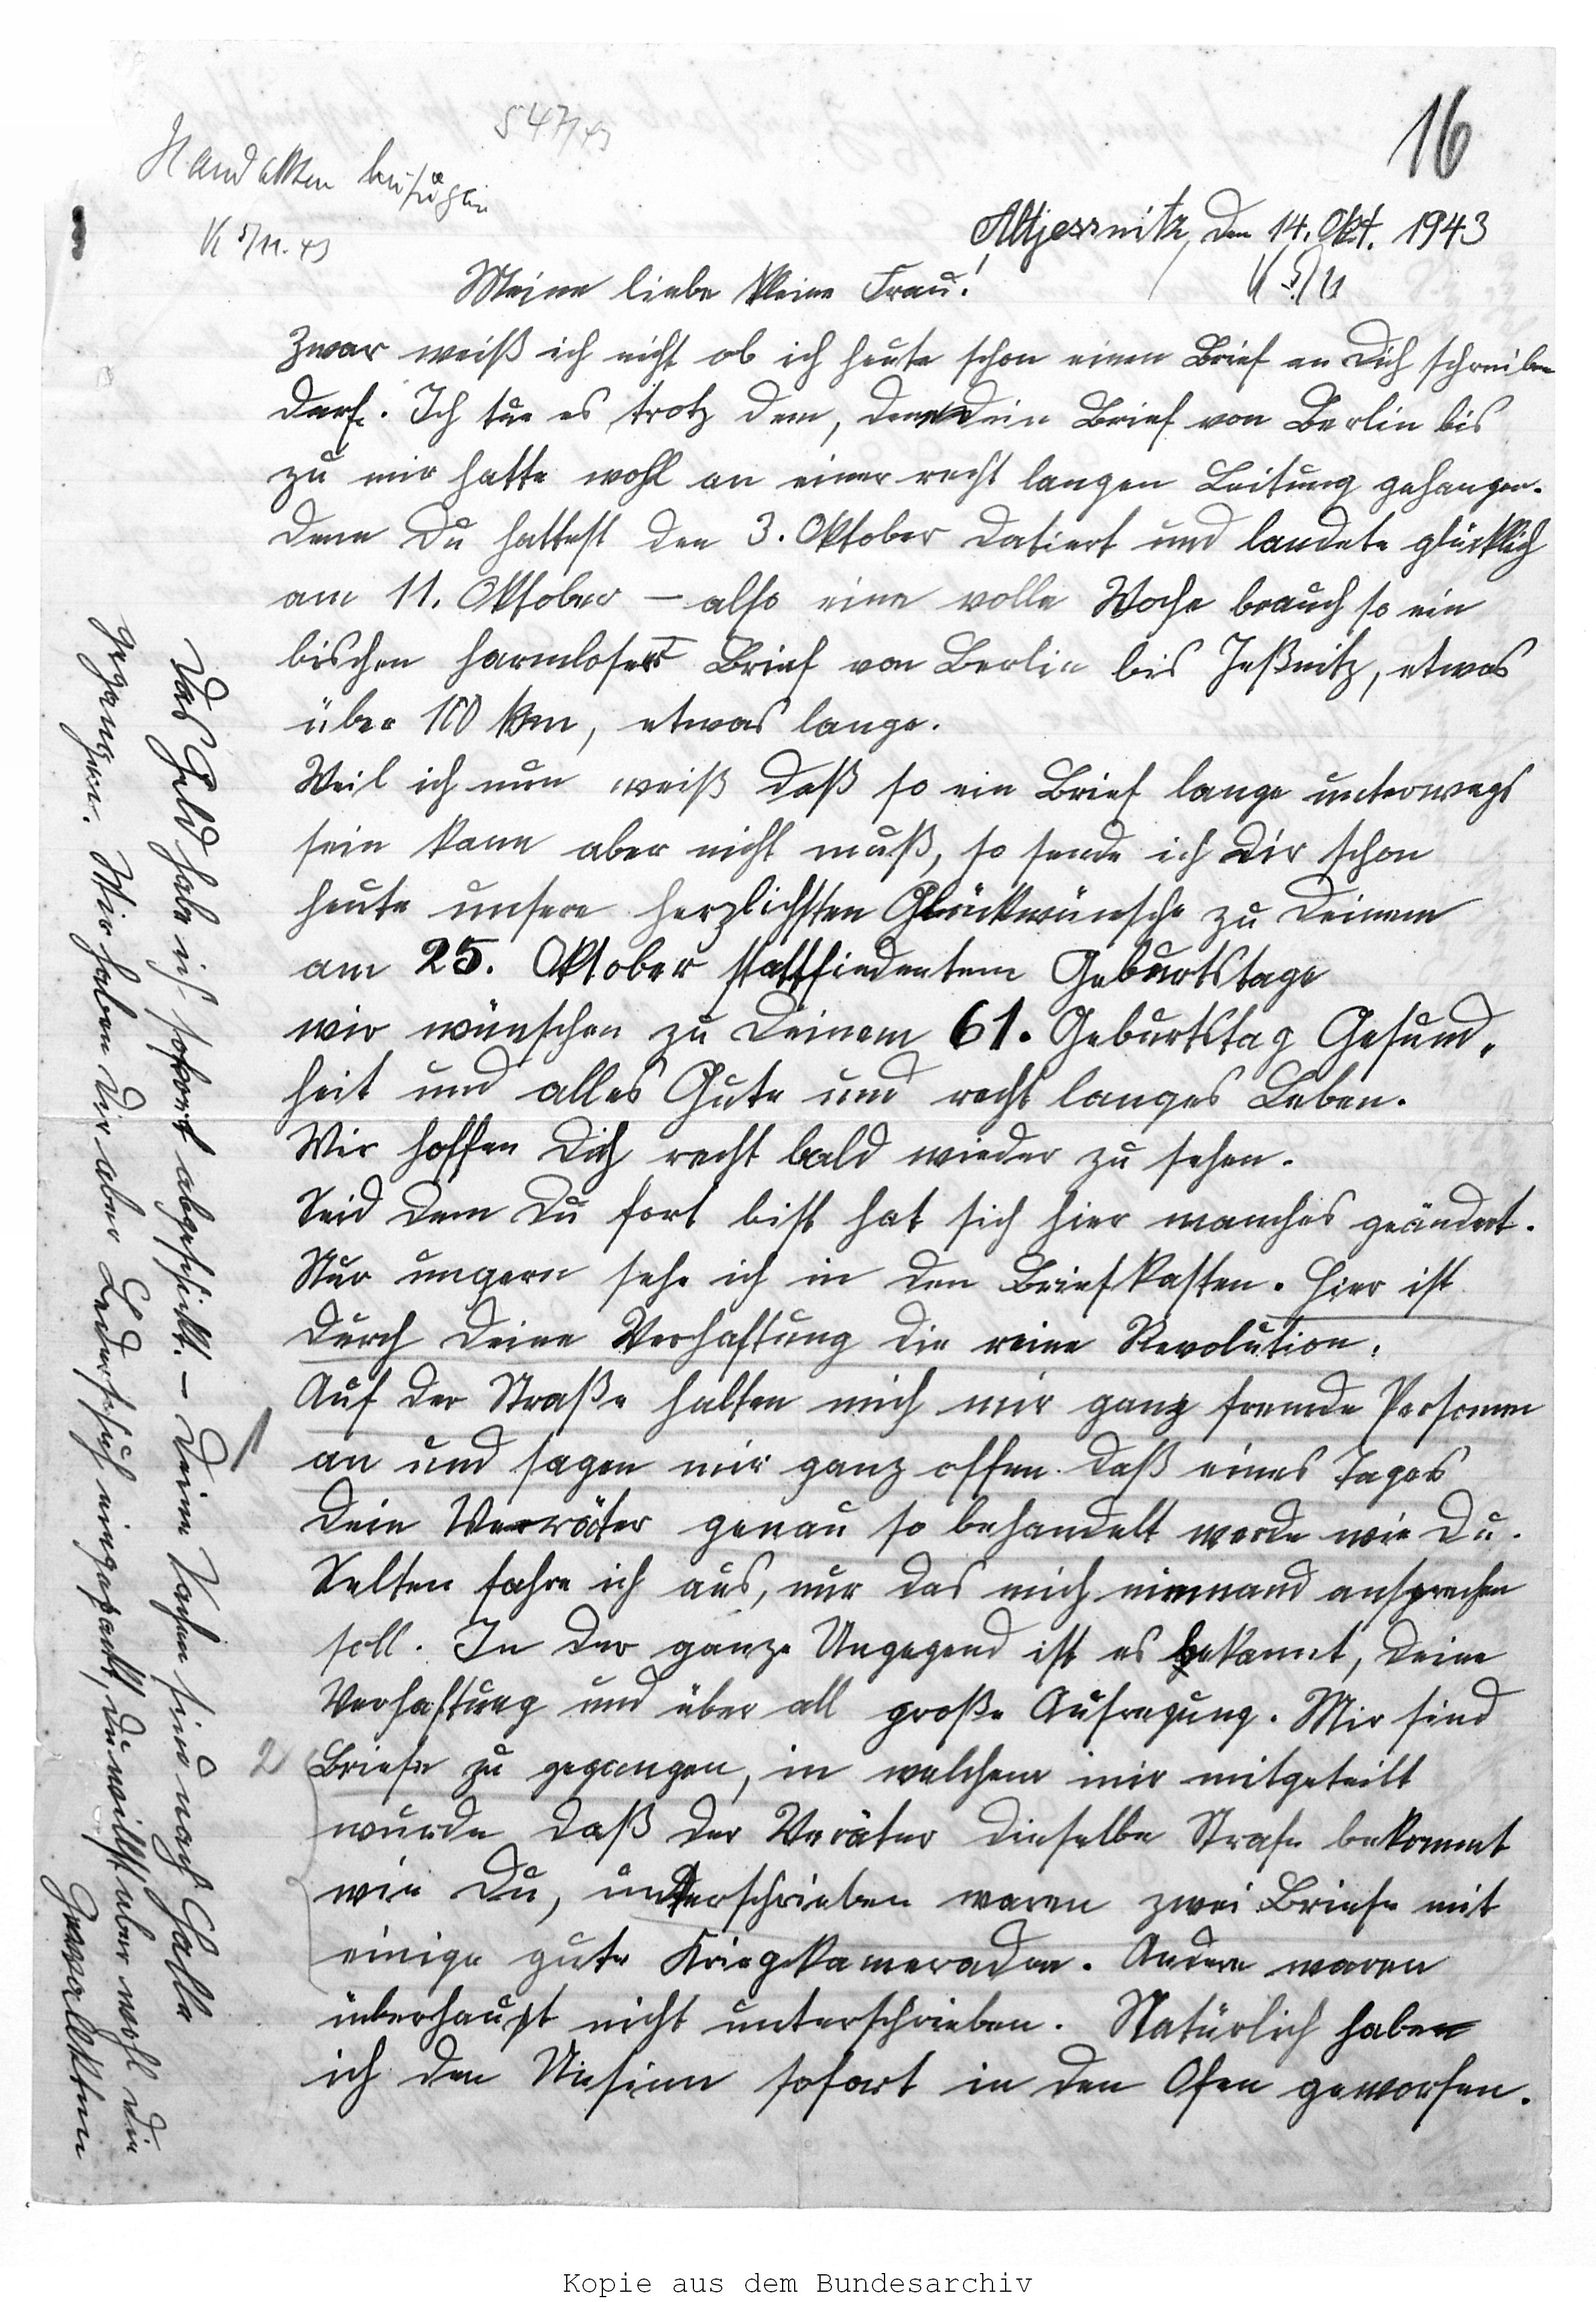 16
547/43
Handakten beifügen
K 5/11. 43
Altjessnitz, den 14. Okt. 1943
K 5/11
Meine liebe kleine Frau!
Zwar weiß ich nicht ob ich heute schon einen Brief an Dich schreiben
darf. Ich tue es trotz dem, denn dein Brief von Berlin bis
zu mir hatte wohl an einer recht langen Leitung gehangen.
denn Du hattest den 3. Oktober datiert und landete glücklich
am 11. Oktober – also eine volle Woche brauch so ein
bischen harmloser Brief von Berlin bis Jeßnitz, etwas
über 100 km, etwas lange.
Weil ich nun weiß daß so ein Brief lange unterwegs
sein kann aber nicht muß, so sende ich Dir schon
heute unsere herzlichsten Glückwünsche zu Deinem
am 25. Oktober stattfindentem Geburtstage
wir wünschen zu Deinem 61. Geburtstag Gesund-
heit und alles Gute und recht langes Leben.
Wir hoffen Dich recht bald wieder zu sehen.
Seid dem Du fort bist hat sich hier manches geändert.
Nur ungern sehe ich in den Briefkasten. Hier ist
durch Deine Verhaftung die reine Revolution.
Auf der Straße halten mich mir ganz fremde Personen
1 an und sagen mir ganz offen daß eines Tages
Dein Verräter genau so behandelt werde wie Du.
Selten fahre ich aus, nur das mich niemand ansprechen
soll. In der ganze Umgegend ist es bekannt, Deine
Verhaftung und über all große Aufregung. Mir sind
2 Briefe zu gegangen, in welchem mir mitgeteilt
wurde daß der Veräter dieselbe Strafe bekommt
wie Du, unterschrieben waren zwei Briefe mit
einige gute Kriegskameraden. Andere waren
überhaupt nicht unterschrieben. Natürlich habe
ich den Unsinn sofort in den Ofen geworfen.
Das Geld habe ich sofort abgeschickt. – Deine Sachen sind nach Halle
gegangen. Wir haben Dir aber Lederschuh eingepackt, du willst aber wohl die
Kopie aus dem Bundesarchiv